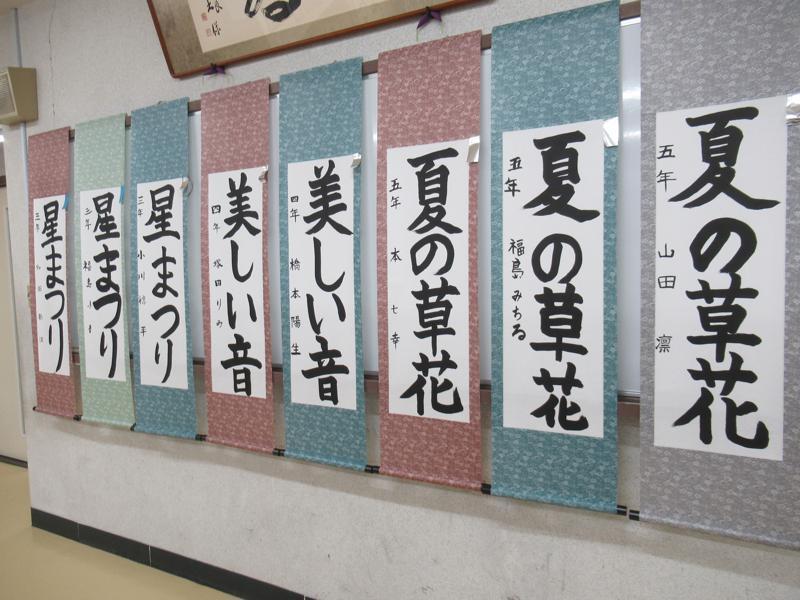 夏の草花
五年 山田 凛
夏の草花
五年 福島みちる
夏の草花
五年 本 七幸
美しい音
四年 橋本陽生
美しい音
四年 塚田りみ
星まつり
三年 小川 平
星まつり
三年 福島
星まつり
三年